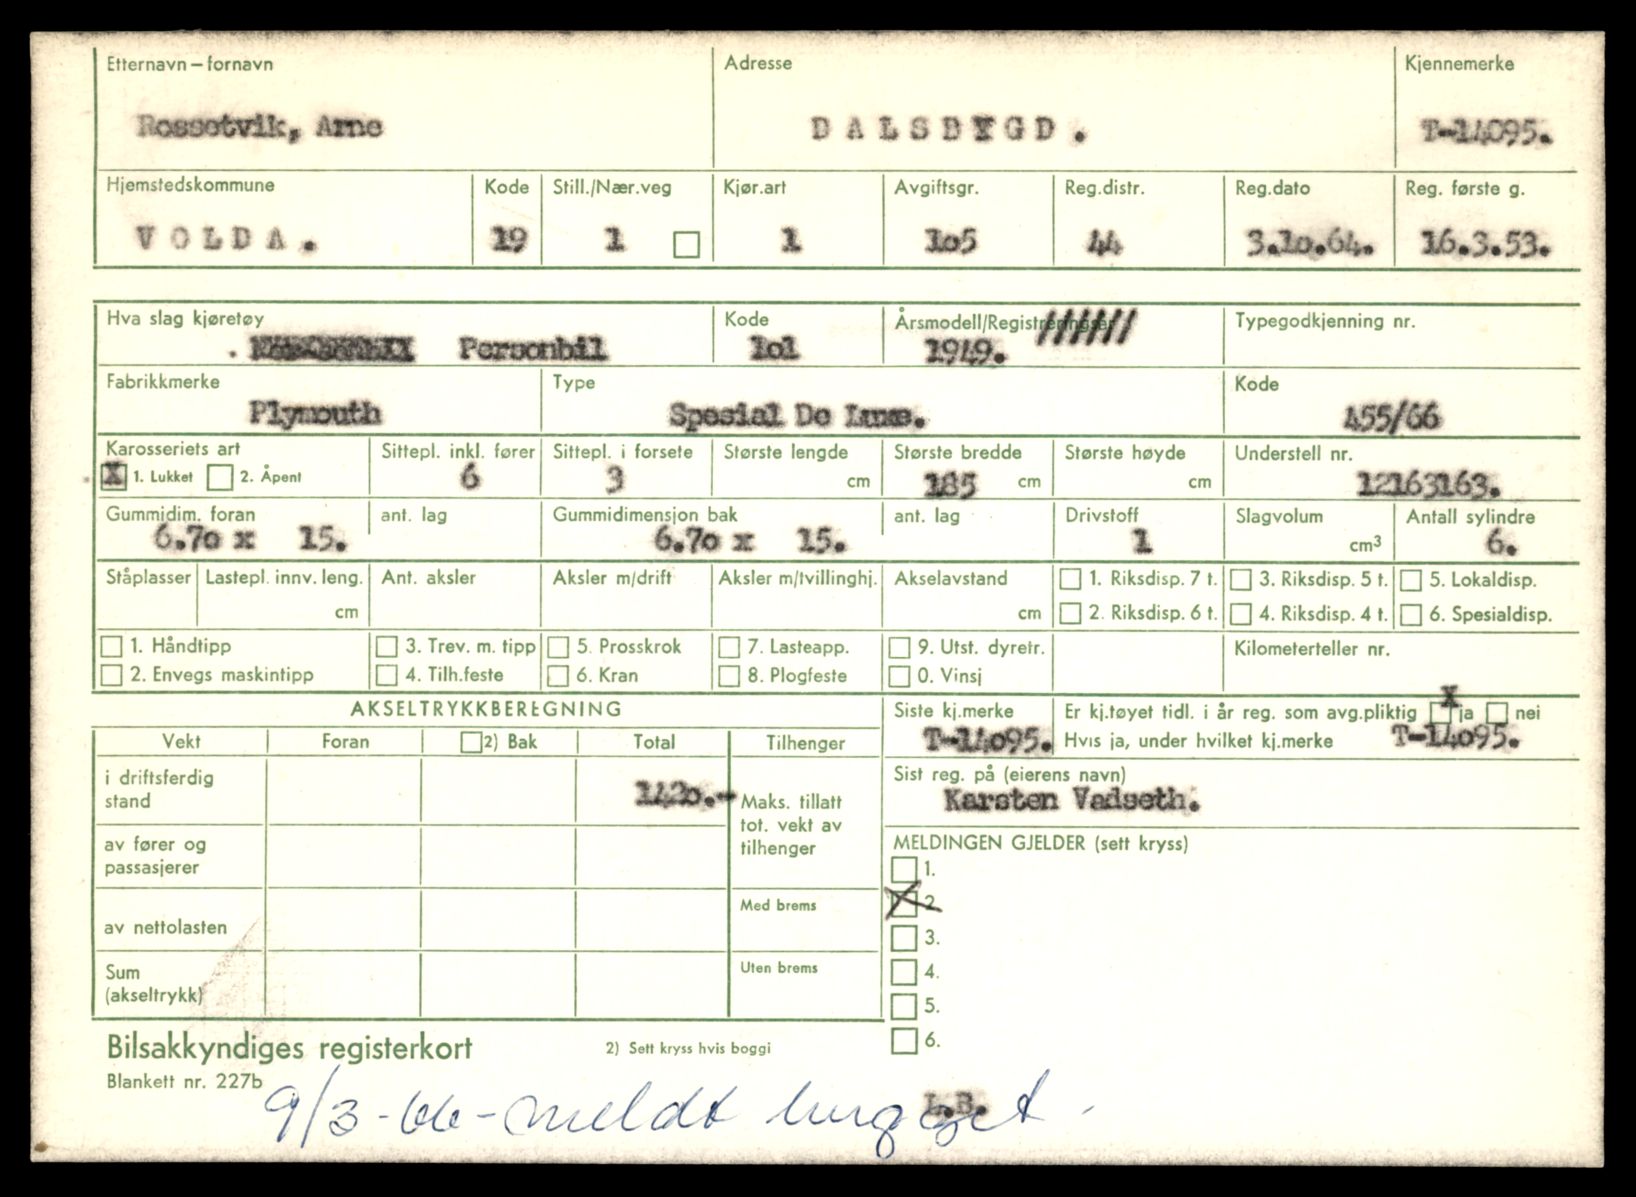 Etternavn – fornavn Adresse Kjennemerke
Rossetvik, Arne DALSBYGD. T-14095.
Hjemstedskommune Kode Still./Nær.veg Kjør.art Avgiftsgr. Reg.distr. Reg.dato Reg. første g.
VOLDA. 19 1 1 1o5 44 3.1o.64. 16.3.53.
Hva slag kjøretøy Kode Årsmodell/Registreringsår Typegodkjenning nr.
Personbil 1o1 1949.
Fabrikkmerke Type Kode
Plymouth Spesial De Luxe. 455/66
Karosseriets art Sittepl. inkl. fører Sittepl. i forsete Største lengde Største bredde Største høyde Understell nr.
X 1. Lukket 2. Åpent 6 3 cm 185 cm cm 12163163.
Gummidim. foran ant. lag Gummidimensjon bak ant. lag Drivstoff Slagvolum Antall sylindre
6.7o x 15. 6.7o x 15. 1 cm3 6.
Ståplasser Lastepl. innv. leng. Ant. aksler Aksler m/drift Aksler m/tvillinghj. Akselavstand 1. Riksdisp. 7 t. 3. Riksdisp. 5 t. 5. Lokaldisp.
cm cm 2. Riksdisp. 6 t. 4. Riksdisp. 4 t. 6. Spesialdisp.
1. Håndtipp 3. Trev. m. tipp 5. Prosskrok 7. Lasteapp. 9. Utst. dyretr. Kilometerteller nr.
2. Envegs maskintipp 4. Tilh.feste 6. Kran 8. Plogfeste 0. Vinsj
AKSELTRYKKBEREGNING Siste kj.merke Er kj.tøyet tidl. i år reg. som avg.pliktig X ja nei
Vekt Foran 2) Bak Total Tilhenger T-14o95. Hvis ja, under hvilket kj.merke T-14o95.
i driftsferdig stand 142o.- Sist reg. på (eierens navn)
Maks. tillatt tot. vekt av tilhenger Karsten Vadseth.
av fører og passasjerer MELDINGEN GJELDER (sett kryss)
1.
av nettolasten Med brems X 2
3.
Sum (akseltrykk) Uten brems 4.
5.
Bilsakkyndiges registerkort 2) Sett kryss hvis boggi 6.
Blankett nr. 227b
L.B.
9/3-66 - meldt hugget -